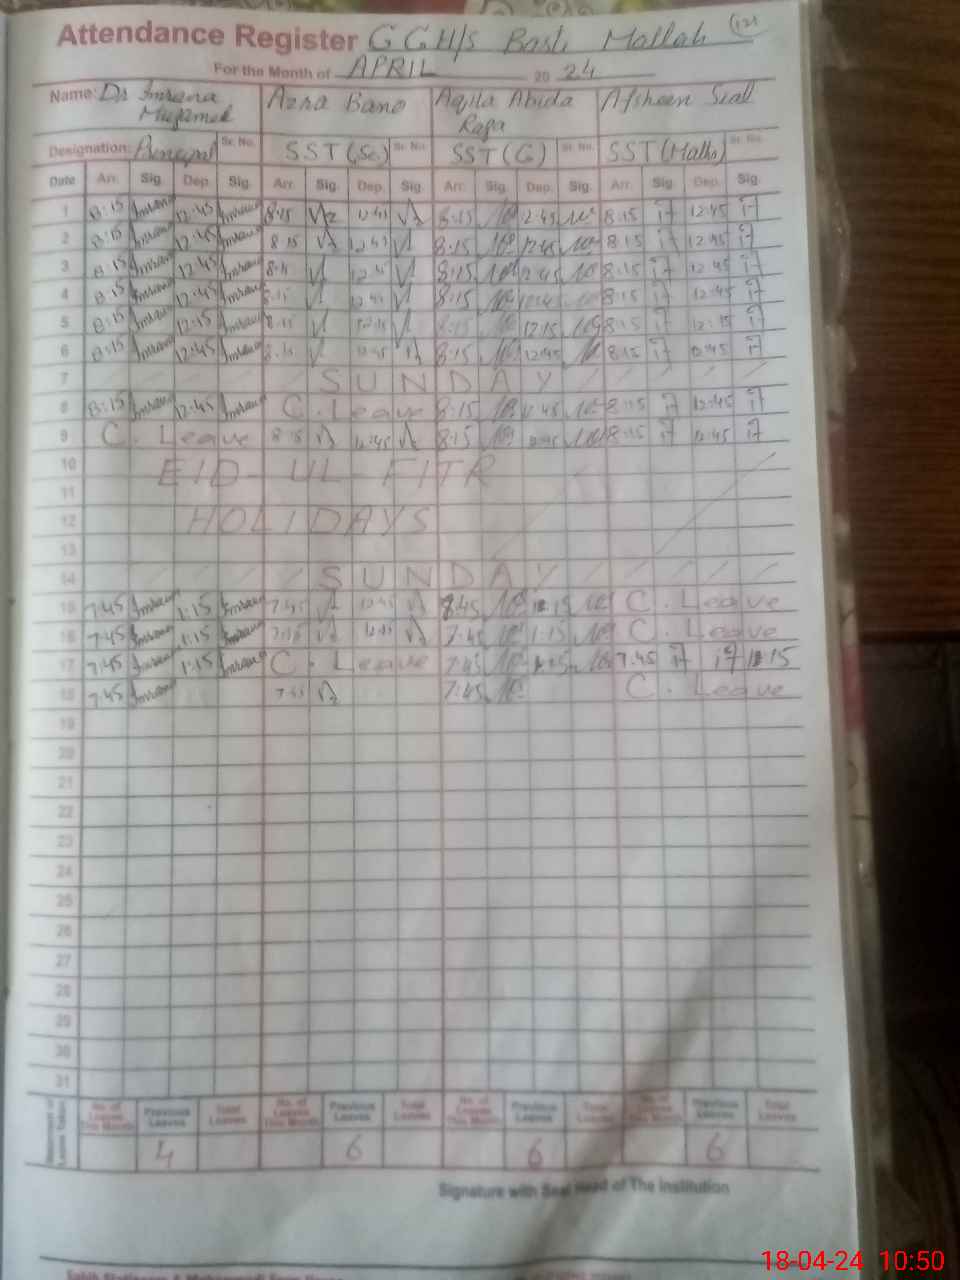 Attendance Register GGH/S Basti Mallah (121)
For the Month of APRIL 2024
Name: Dr Imrana Azra Bano Aqila Abida Afsheen Sial
Designation: Principal Sr. No. SST(Sc.) Sr. No. SST(G) Sr. No. SST(Maths) Sr. No.
Date Arr. Sig. Dep. Sig. Arr. Sig. Dep. Sig. Arr. Sig. Dep. Sig. Arr. Sig. Dep. Sig.
1 8:15 Imrana 12:45 Imrana 8:15 12:45 8:15 2:45 8:15 12:45
2 8:15 Imrana 12:45 Imrana 8:15 12:45 8:15 12:45 8:15 12:45
3 8:15 Imrana 12:45 Imrana 8:15 12:45 8:15 2:45 8:15 12:45
4 8:15 Imrana 12:45 Imrana 8:15 12:45 8:15 12:45 8:15 12:45
5 8:15 Imrana 12:15 Imrana 8:15 12:15 8:15 12:15 8:15 12:15
6 8:15 Imrana 12:45 Imrana 8:15 12:45 8:15 12:45 8:15 12:45
7 SUNDAY
8 8:15 Imrana 12:45 Imrana C. Leave 8:15 12:45 8:15 12:45
9 C. Leave 8:15 12:45 8:15 12:45 8:15 12:45
10 EID-UL-FITR
11
12 HOLIDAYS
13
14 SUNDAY
15 7:45 Imrana 1:15 Imrana 7:45 7:45 1:15 C. Leave
16 7:45 Imrana 1:15 Imrana 7:45 7:45 1:15 C. Leave
17 7:45 Imrana 1:15 Imrana C. Leave 7:45 1:15 7:45 1:15
18 7:45 Imrana 7:45 7:45 C. Leave
19
20
21
22
23
24
25
26
27
28
29
30
31
No. of Leaves This Month Previous Leaves Total Leaves No. of Leaves This Month Previous Leaves Total Leaves No. of Leaves This Month Previous Leaves Total Leaves Previous Leaves Total Leaves
4 6 6 6
Signature with Seal Head of The Institution
18-04-24 10:50